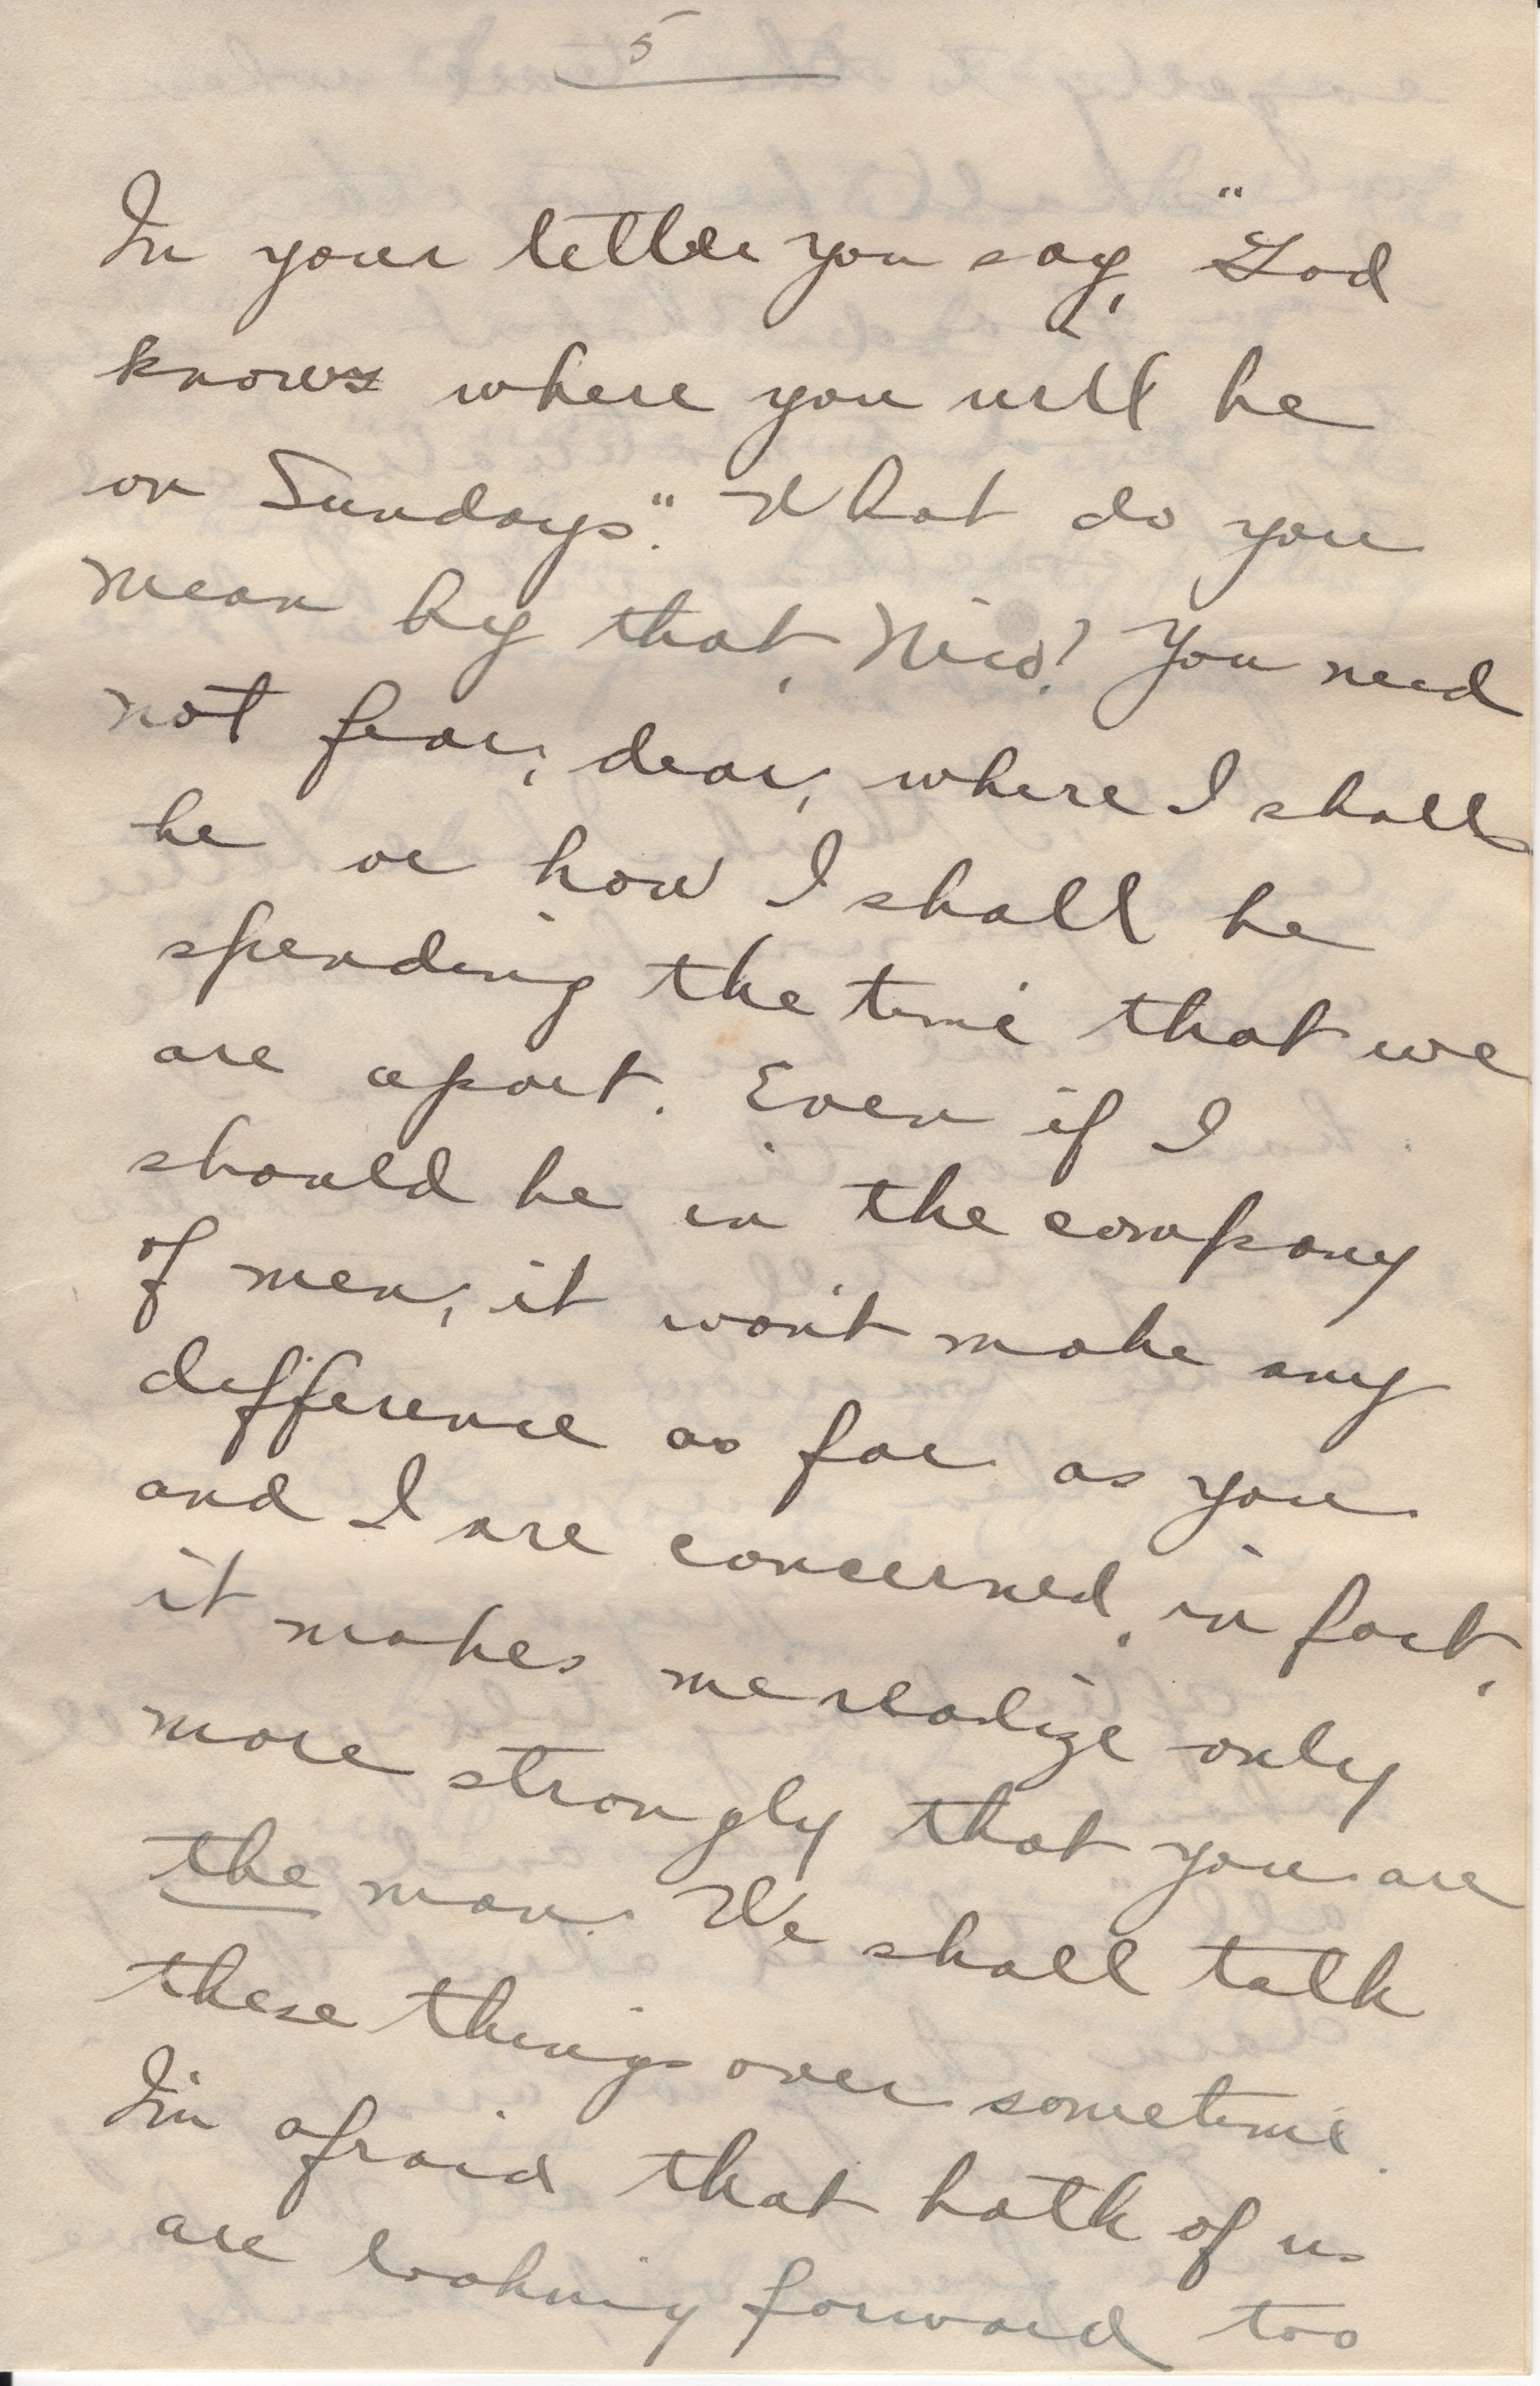 5
In your letter you say, "God
knows where you will be
on Sundays." What do you
mean by that, Nico? You need
not fear, dear, where I shall
be or how I shall be
spending the time that we
are apart. Even if I
should be in the company
of men, it won't make any
difference as far as you
and I are concerned, in fact,
it makes me realize only
more strongly that you are
the man. We shall talk
these things over sometime.
I'm afraid that both of us
are looking forward too